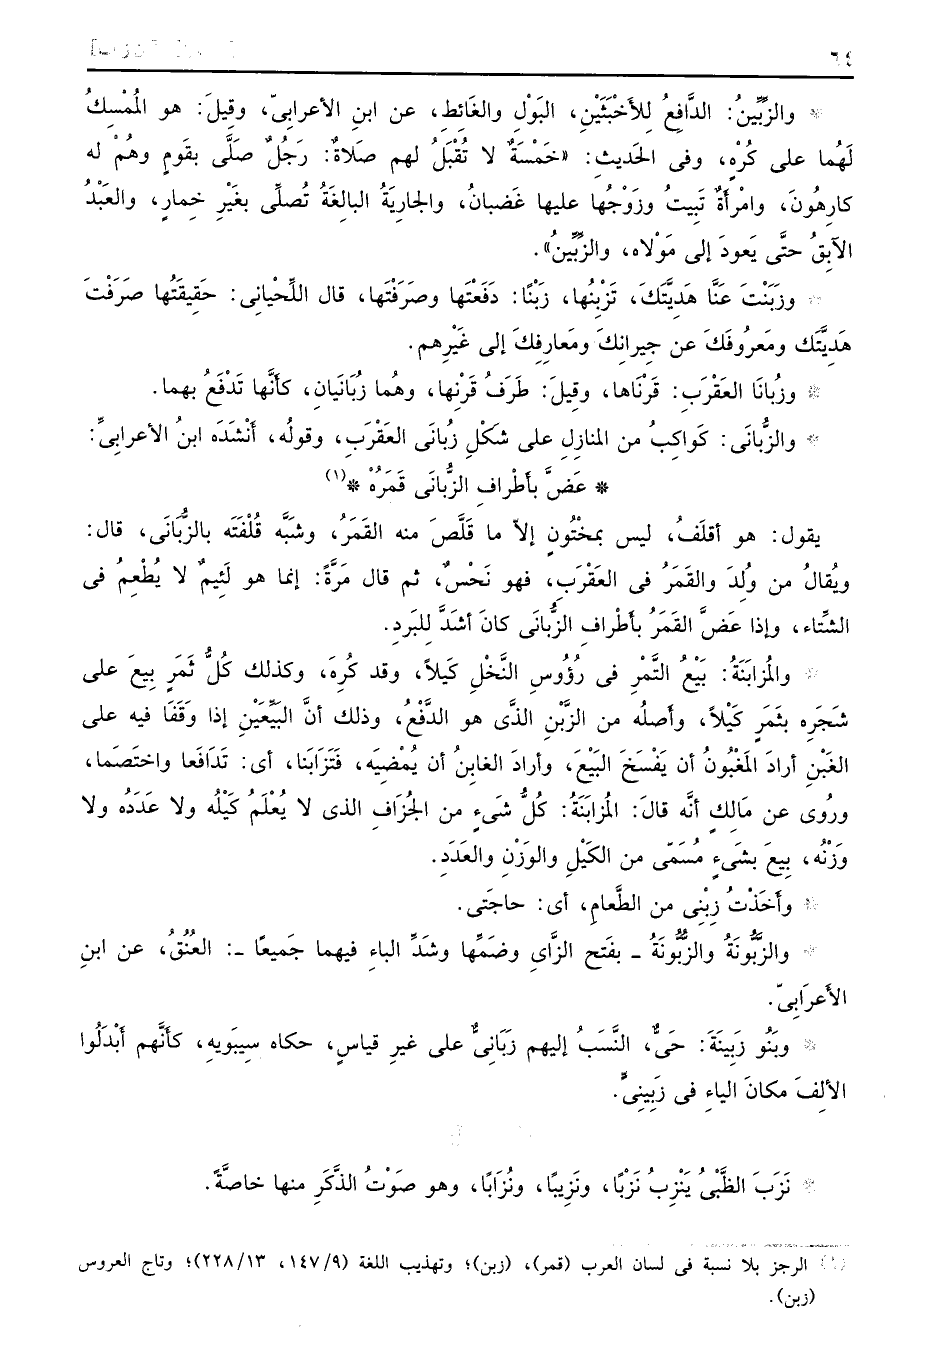 ٦٤
* والزِّبِّينُ: الدَّافِعُ للأَخْبَثَيْنِ، البَوْلِ والغَائطِ، عن ابنِ الأعرابىِّ، وقيلَ: هو المُمْسِكُ
لَهُما على كُرْهٍ، وفى الحَديثِ: «خَمْسَةٌ لا تُقْبَلُ لهم صَلاةٌ: رَجُلٌ صلَّى بقَومٍ وهُمْ له
كارِهُونَ، وامْرأَةٌ تَبيتُ وزَوْجُها عليها غَضبانُ، والجاريَةُ البالغَةُ تُصلِّى بغَيْرِ خمارٍ، والعَبْدُ
الآبِقُ حتَّى يَعودَ إلى مَوْلاه، والزِّبِّينُ».
* وزَبَنْتَ عَنَّا هَديَّتَكَ، تَزْبِنُها، زَبْنًا: دَفَعْتَها وصَرَفْتَها، قال اللِّحيانى: حَقيقَتُها صَرَفْتَ
هَديَّتَك ومَعرُوفَكَ عن جيرانِكَ ومَعارِفِكَ إلى غَيْرِهم.
* وزُبانَا العَقْرَبِ: قَرْنَاها، وقيلَ: طَرَفُ قَرْنِها، وهُما زُبَانَيانِ، كأنَّها تَدْفَعُ بهما.
* والزُّبانَى: كَواكِبُ من المَنازِلِ على شَكْلِ زُبانَى العَقْرَبِ، وقولُه، أنْشَدَه ابنُ الأعرابىِّ:
* عَضَّ بأَطْرافِ الزُّبانَى قَمَرُهْ *(١)
يقول: هو أقلَفُ، ليس بمخْتُونٍ إلاّ ما قَلَّصَ منه القمَرُ، وشبَّه قُلْفَتَه بالزُّبَانَى، قال:
ويُقالُ من وُلِدَ والقَمَرُ فى العَقْرَبِ، فهو نَحْسٌ، ثم قال مَرَّةً: إنما هو لَئيمٌ لا يُطْعِمُ فى
الشِّتاء، وإذا عَضَّ القَمَرُ بأَطْرافِ الزُّبانَى كانَ أشدَّ للبَرد.
* والمُزابَنَةُ: بَيْعُ التَّمْرِ فى رُؤُوسِ النَّخْلِ كَيلاً، وقد كُرِهَ، وكذلك كُلُّ ثَمَرٍ بِيعَ على
شَجَرِه بثَمَرٍ كَيْلاً، وأصلُه من الزَّبْنِ الذَّى هو الدَّفْعُ، وذلك أنَّ البَيِّعَيْنِ إذا وَقَفَا فيه على
الغَبْنِ أرادَ المَغْبُونُ أن يَفْسَخَ البَيْعَ، وأرادَ الغابِنُ أن يُمْضِيَه، فَتَزَابَنا، أى: تَدَافَعا واختَصَما،
ورُوى عن مَالِكٍ أنَّه قالَ: المُزابَنَةُ: كُلُّ شَىءٍ من الجُزَافِ الذى لا يُعْلَمُ كَيْلُه ولا عَدَدُه ولا
وَزْنُه، بِيعَ بشَىءٍ مُسَمّى من الكَيْلِ والوَزْنِ والعَدَدِ.
* وأخَذْتُ زِبْنِى من الطَّعامِ، أى: حاجَتى.
* والزَّبُّونَةُ والزُّبُّونَةُ ـ بفَتحِ الزَّاىِ وضَمِّها وشَدِّ الباءِ فيهما جَميعًا ـ: العُنُقُ، عن ابنِ
الأعرَابىِّ.
* وبَنُو زَبِينَةَ: حَىٌّ، النَّسَبُ إليهم زَبَانِىٌّ على غيرِ قياسٍ، حكاه سِيبَويهِ، كأنَّهم أبْدَلُوا
الألِفَ مكانَ الياءِ فى زَبِينِىٍّ.
* نَزَبَ الظَّبْىُ يَنْزِبُ نَزْبًا، ونَزِيبًا، ونُزَابًا، وهو صَوْتُ الذَّكَرِ منها خاصَّةً.
(١) الرجز بلا نسبة فى لسان العرب (قمر)، (زبن)؛ وتهذيب اللغة (١٤٧/٩، ٢٢٨/١٣)؛ وتاج العروس
(زبن).